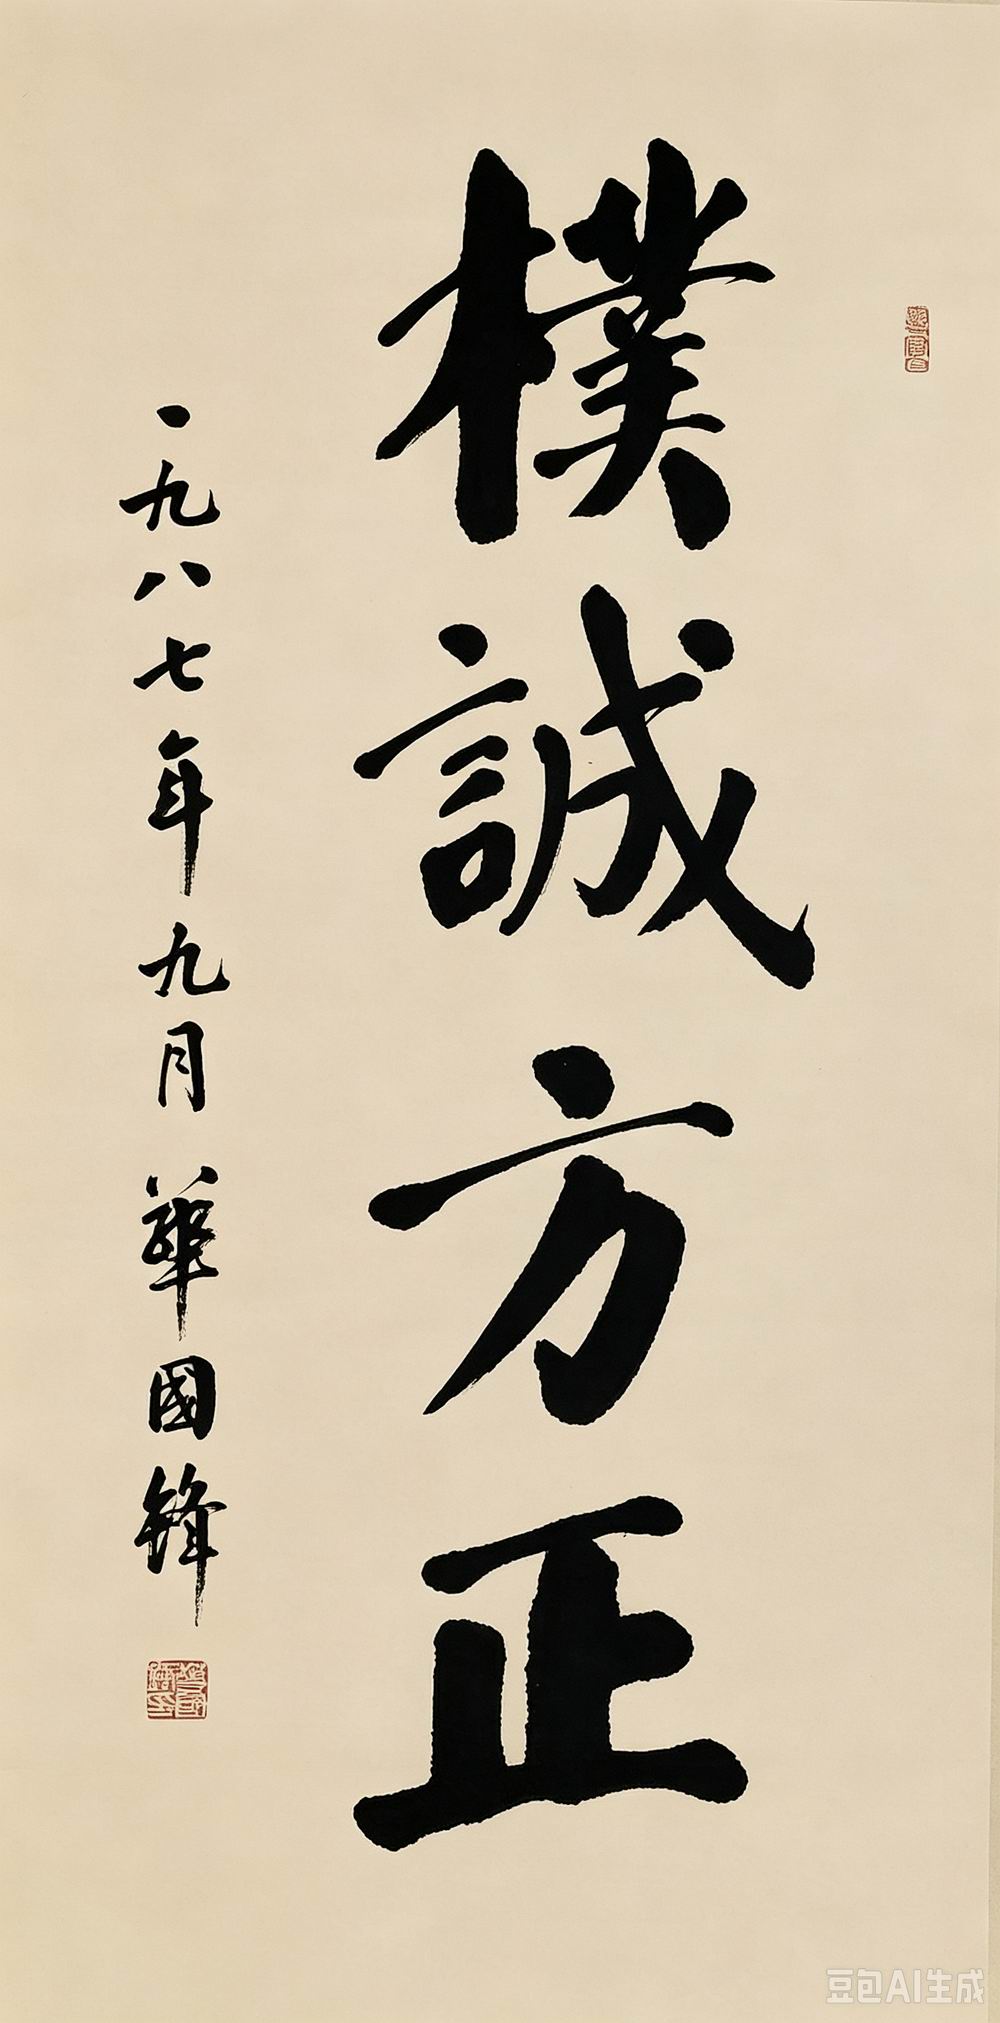 樸誠方正
一九八七年九月 華國鋒
豆包AI生成